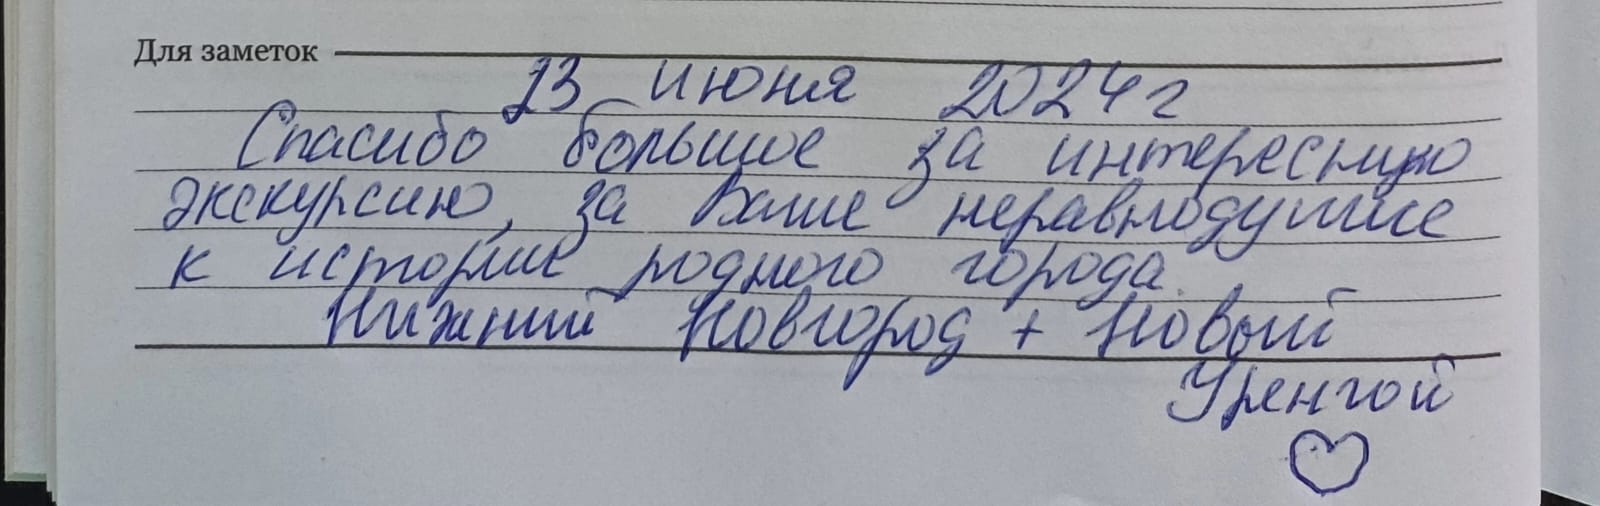 Для заметок
13 июня 2024г
Спасибо большое за интересную
экскурсию, за Ваше неравнодушие
к истории родного города.
Нижний Новгород + Новый
Уренгой